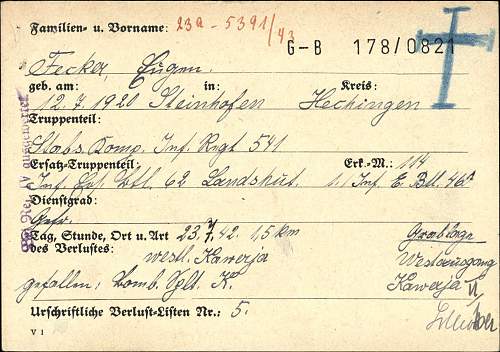 Familien- u. Vorname: 23a - 5391/43
G-B 178/0821
Fecker, Eugen.
geb. am: in: Kreis:
12.7.1920 Steinhofen Hechingen
Truppenteil:
Stabs Komp. Inf. Rgt 541
Ersatz-Truppenteil: Erk.-M.: 114
Inf. Ers. Btl. 62 Landshut. 1./Inf. E. Btl. 46
Dienstgrad:
Gefr.
Tag, Stunde, Ort u. Art 23.7.42. 1,5 km Grablage
des Verlustes: westl. Kawerja Westausgang
gefallen: Bomb. Splt. K. Kawerja
Urschriftliche Verlust-Listen Nr.: 5.
V 1